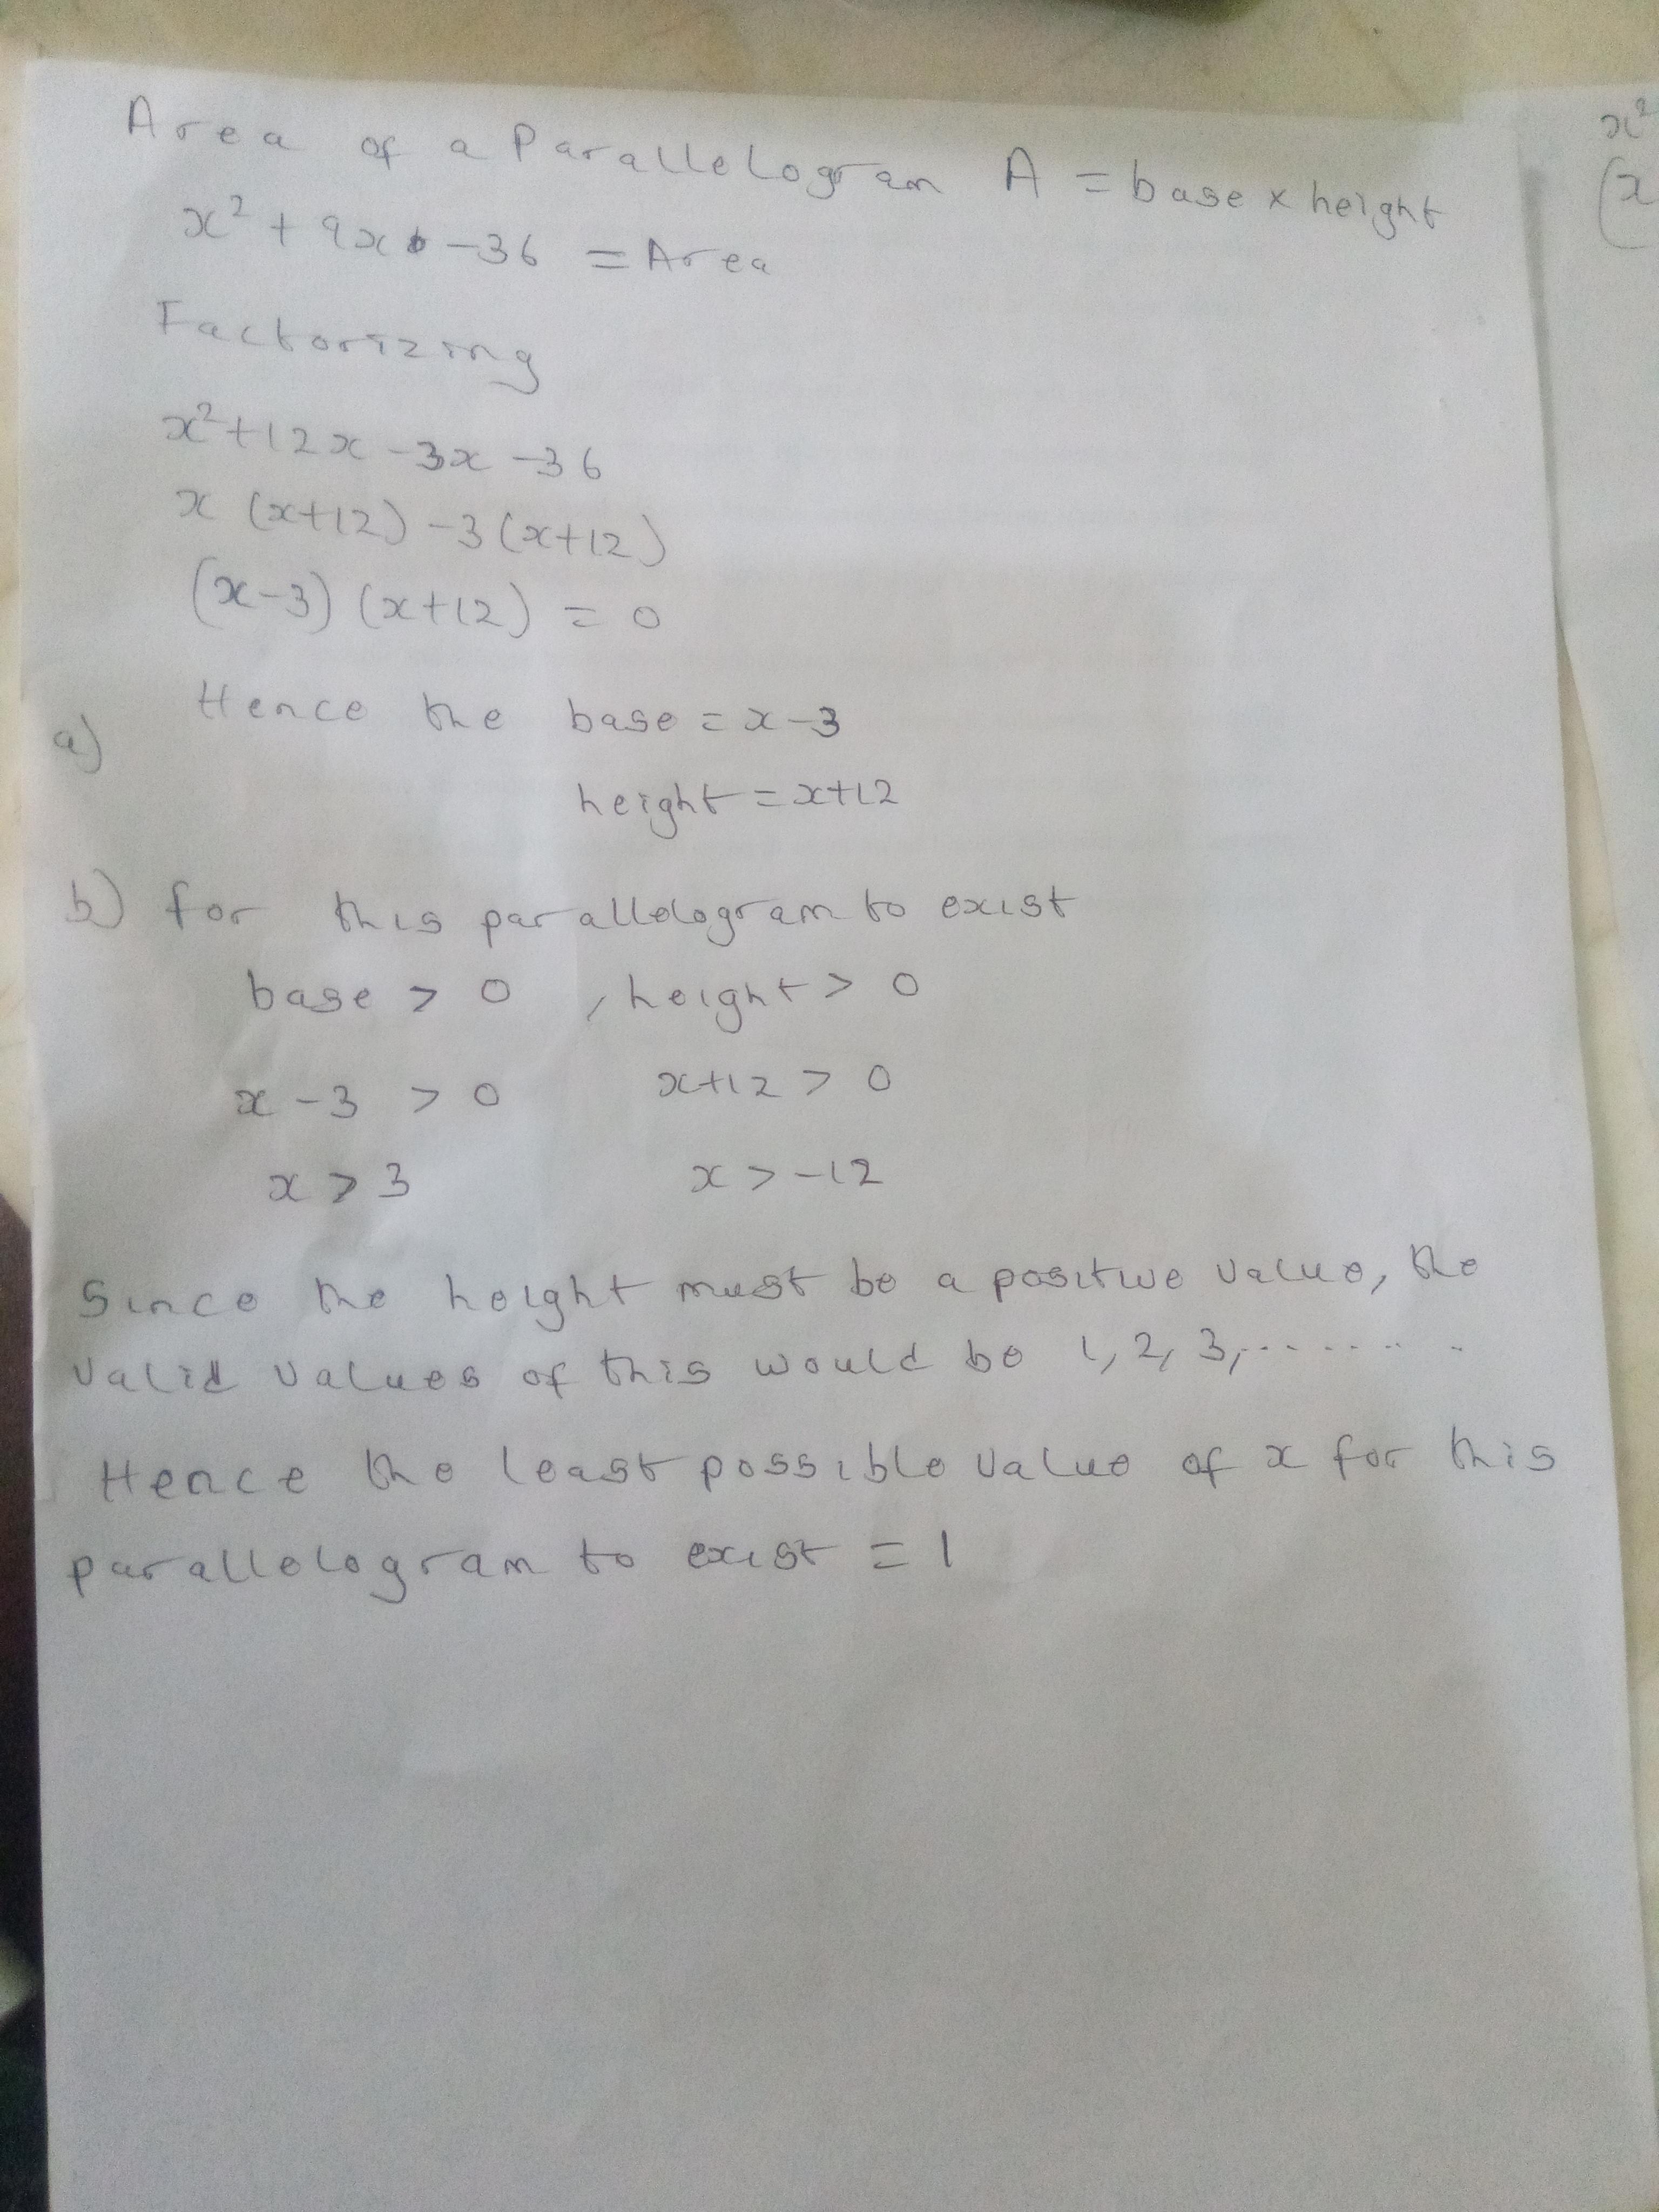 Area of a Parallelogram A = base x height
x² + 9x - 36 = Area
Factorizing
x² + 12x - 3x - 36
x (x+12) - 3 (x+12)
(x-3) (x+12) = 0
a) Hence the base = x-3
height = x+12
b) for this parallelogram to exist
base > 0 , height > 0
x - 3 > 0 x+12 > 0
x > 3 x > -12
Since the height must be a positive value, the
valid values of this would be 1, 2, 3, ........
Hence the least possible value of x for this
parallelogram to exist = 1
x²
(x